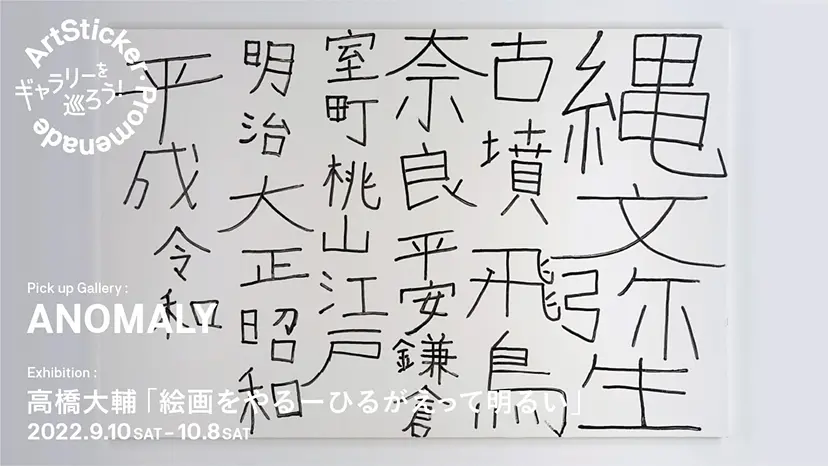 ArtSticker Promenade
ギャラリーを
巡ろう!
縄文弥生
古墳飛鳥
奈良平安鎌倉
室町桃山江戸
明治大正昭和
平成令和
Pick up Gallery :
ANOMALY
Exhibition :
高橋大輔「絵画をやるーひるがえって明るい」
2022.9.10 SAT – 10.8 SAT